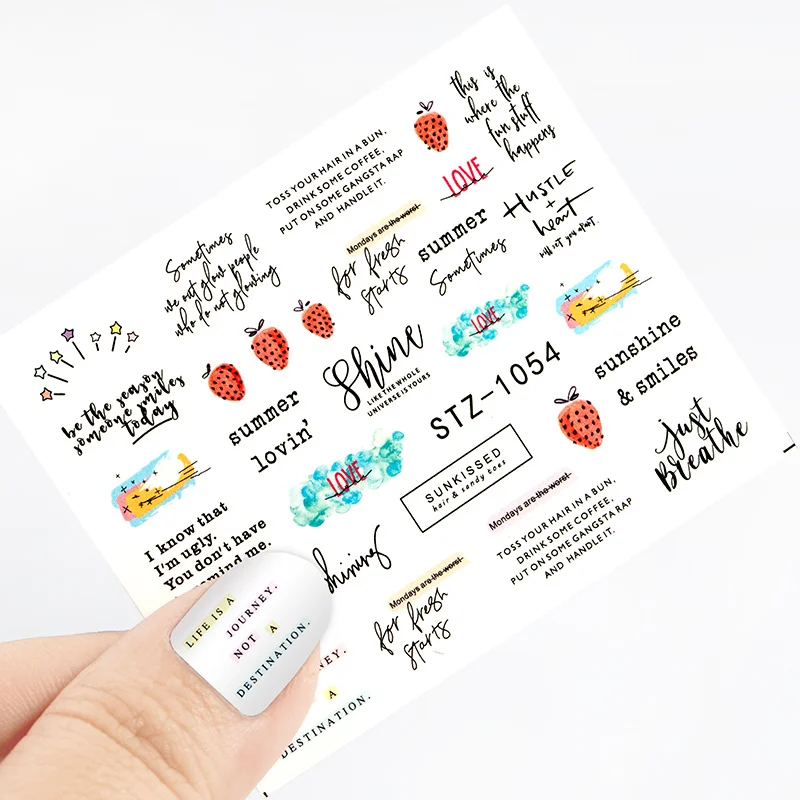 this is
where the
fun stuff
happens
TOSS YOUR HAIR IN A BUN,
DRINK SOME COFFEE,
PUT ON SOME GANGSTA RAP
AND HANDLE IT.
LOVE
HUSTLE
+
heart
will set you apart.
Mondays are the worst
for fresh
starts
summer
Sometimes
Sometimes
we out glow people
who do not glowing
be the season
someone smiles
today
Shine
LIKE THE WHOLE
UNIVERSE IS YOURS
LOVE
STZ-1054
sunshine
& smiles
summer
lovin'
LOVE
SUNKISSED
hair & sandy toes
just
Breathe
Mondays are the worst
TOSS YOUR HAIR IN A BUN,
DRINK SOME COFFEE,
PUT ON SOME GANGSTA RAP
AND HANDLE IT.
I know that
I'm ugly.
You don't have
remind me.
shining
Mondays are the worst
for fresh
starts
LIFE IS A
JOURNEY.
NOT A
DESTINATION.
NEY.
A
DESTINATION.